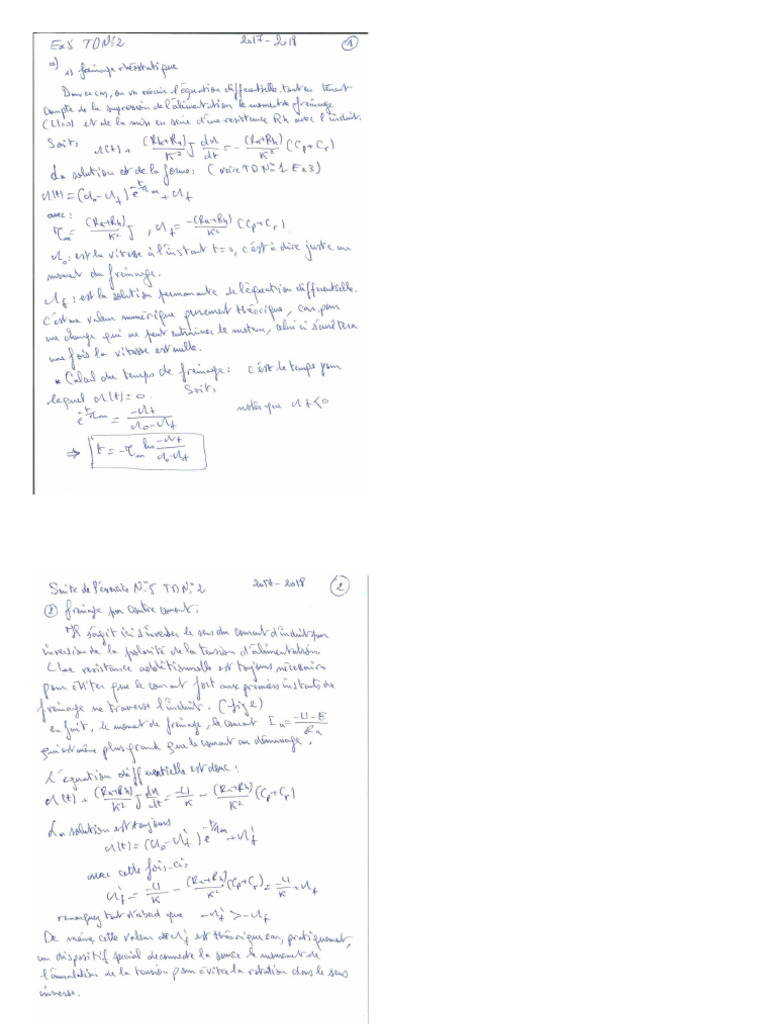 Ex5 TDN°2 2017-2018 1
a) 1) freinage rhéostatique
Dans ce cas, on va écrire l'équation différentielle tout en tenant
compte de la supression de l'alimentation le moment de freinage
(U=0) et de la mise en série d'une resistance Rh avec l'induit.
Soit: Ω(t) + (Ra+Rh)/K² J dΩ/dt = -(Ra+Rh)/K² (Cp+Cr)
La solution est de la forme: (voire TDN°1 Ex3)
Ω(t) = (Ω₀-Ωf) e^(-t/τm) + Ωf
avec:
τm = (Ra+Rh)/K² J, Ωf = -(Ra+Rh)/K² (Cp+Cr)
Ω₀: est la vitesse à l'instant t=0, c'est à dire juste au
moment du freinage.
Ωf: est la solution permanante de l'équation différentielle.
c'est une valeur numérique purement théorique, car, pour
une charge qui ne peut entrainer le moteur, celui ci s'arrêtera
une fois la vitesse est nulle.
* Calcul du temps de freinage: c'est le temps pour
lequel Ω(t)=0. Soit:
e^(-t/τm) = -Ωf/(Ω₀-Ωf) notée que Ωf<0
⇒ t = -τm ln -Ωf/(Ω₀-Ωf)
Suite de l'exercice N°5 TDN°2 2017-2018 2
2) freinage par contre courant.
Il s'agit ici d'inverser le sens du courant d'induit par
inversion de la polarité de la tension d'alimentation
Une resistance additionnelle est toujours nécessaire
pour éviter que le courant fort aux premiers instants de
freinage ne traverse l'induit. (fig 2)
en fait, le moment de freinage, le courant Ia = (-U-E)/Ra
qui est même plus grand que le courant au démarrage.
L'équation différentielle est donc:
Ω(t) + (Ra+Rh)/K² J dΩ/dt = -U/K - (Ra+Rh)/K² (Cp+Cr)
La solution est toujours
Ω(t) = (Ω₀-Ω'f) e^(-t/τm) + Ω'f
avec cette fois-ci:
Ω'f = -U/K - (Ra+Rh)/K² (Cp+Cr) = -U/K + Ωf
remarquez tout d'abord que -Ω'f > -Ωf
De même cette valeur de Ω'f est théorique car, pratiquement,
un dispositif spécial déconnecte la source le moment de
l'annulation de la tension pour éviter la rotation dans le sens
inverse.